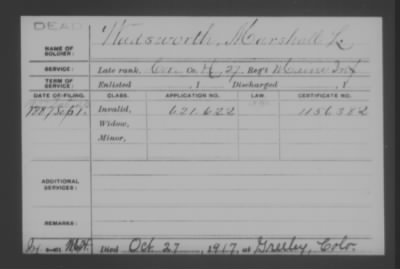 DEAD
NAME OF SOLDIER: Wadsworth, Marshall L
SERVICE: Late rank, Co. H, 27, Reg't Maine Inf
TERM OF SERVICE: Enlisted , 1 Discharged , 1
DATE OF FILING. CLASS. APPLICATION NO. LAW. CERTIFICATE NO.
1887 Sept. Invalid, 621.622 1156382
Widow,
Minor,
ADDITIONAL SERVICES:
REMARKS:
Died Oct. 27, 1917, at Greeley, Colo.